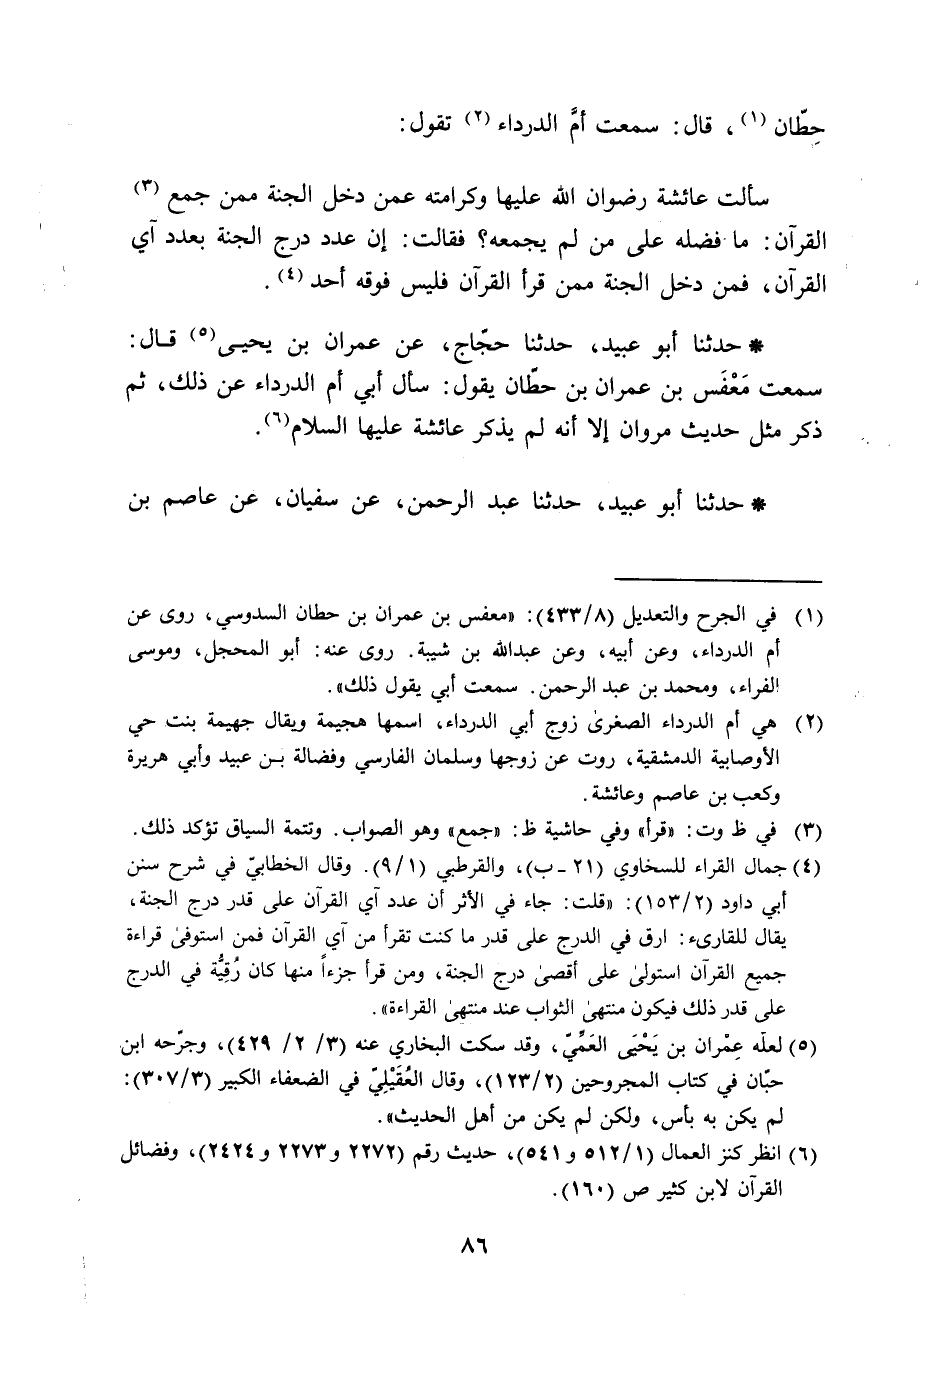 حِطّان (١) ، قال: سمعت أمَّ الدرداء (٢) تقول:
سألت عائشة رضوان الله عليها وكرامته عمن دخل الجنة ممن جمع (٣)
القرآن: ما فضله على من لم يجمعه؟ فقالت: إن عدد درج الجنة بعدد آي
القرآن، فمن دخل الجنة ممن قرأ القرآن فليس فوقه أحد (٤) .
* حدثنا أبو عبيد، حدثنا حجّاج، عن عمران بن يحيى(٥) قال:
سمعت مَعْفَس بن عمران بن حطّان يقول: سأل أبي أم الدرداء عن ذلك، ثم
ذكر مثل حديث مروان إلا أنه لم يذكر عائشة عليها السلام(٦).
* حدثنا أبو عبيد، حدثنا عبد الرحمن، عن سفيان، عن عاصم بن
(١) في الجرح والتعديل (٤٣٣/٨): «معفس بن عمران بن حطان السدوسي، روى عن
أم الدرداء، وعن أبيه، وعن عبدالله بن شيبة. روى عنه: أبو المحجل، وموسى
الفراء، ومحمد بن عبد الرحمن. سمعت أبي يقول ذلك».
(٢) هي أم الدرداء الصغرىٰ زوج أبي الدرداء، اسمها هجيمة ويقال جهيمة بنت حي
الأوصابية الدمشقية، روت عن زوجها وسلمان الفارسي وفضالة بـن عبيد وأبي هريرة
وكعب بن عاصم وعائشة.
(٣) في ظ وت: «قرأ» وفي حاشية ظ: «جمع» وهو الصواب. وتتمة السياق تؤكد ذلك.
(٤) جمال القراء للسخاوي (٢١ ـ ب)، والقرطبي (٩/١). وقال الخطابيّ في شرح سنن
أبي داود (١٥٣/٢): «قلت: جاء في الأثر أن عدد آي القرآن على قدر درج الجنة،
يقال للقارىء: ارق في الدرج على قدر ما كنت تقرأ من آي القرآن فمن استوفىٰ قراءة
جميع القرآن استولىٰ على أقصىٰ درج الجنة، ومن قرأ جزءاً منها كان رُقِيُّه في الدرج
على قدر ذلك فيكون منتهىٰ الثواب عند منتهىٰ القراءة».
(٥) لعلّه عِمْران بن يَحْيَى العَمِّيّ، وقد سكت البخاري عنه (٣/ ٢/ ٤٢٩)، وجرّحه ابن
حبّان في كتاب المجروحين (١٢٣/٢)، وقال العُقَيْلِيّ في الضعفاء الكبير (٣٠٧/٣):
لم يكن به بأس، ولكن لم يكن من أهل الحديث».
(٦) انظر كنز العمال (٥١٢/١ و٥٤١)، حديث رقم (٢٢٧٢ و٢٢٧٣ و٢٤٢٤)، وفضائل
القرآن لابن كثير ص (١٦٠).
٨٦